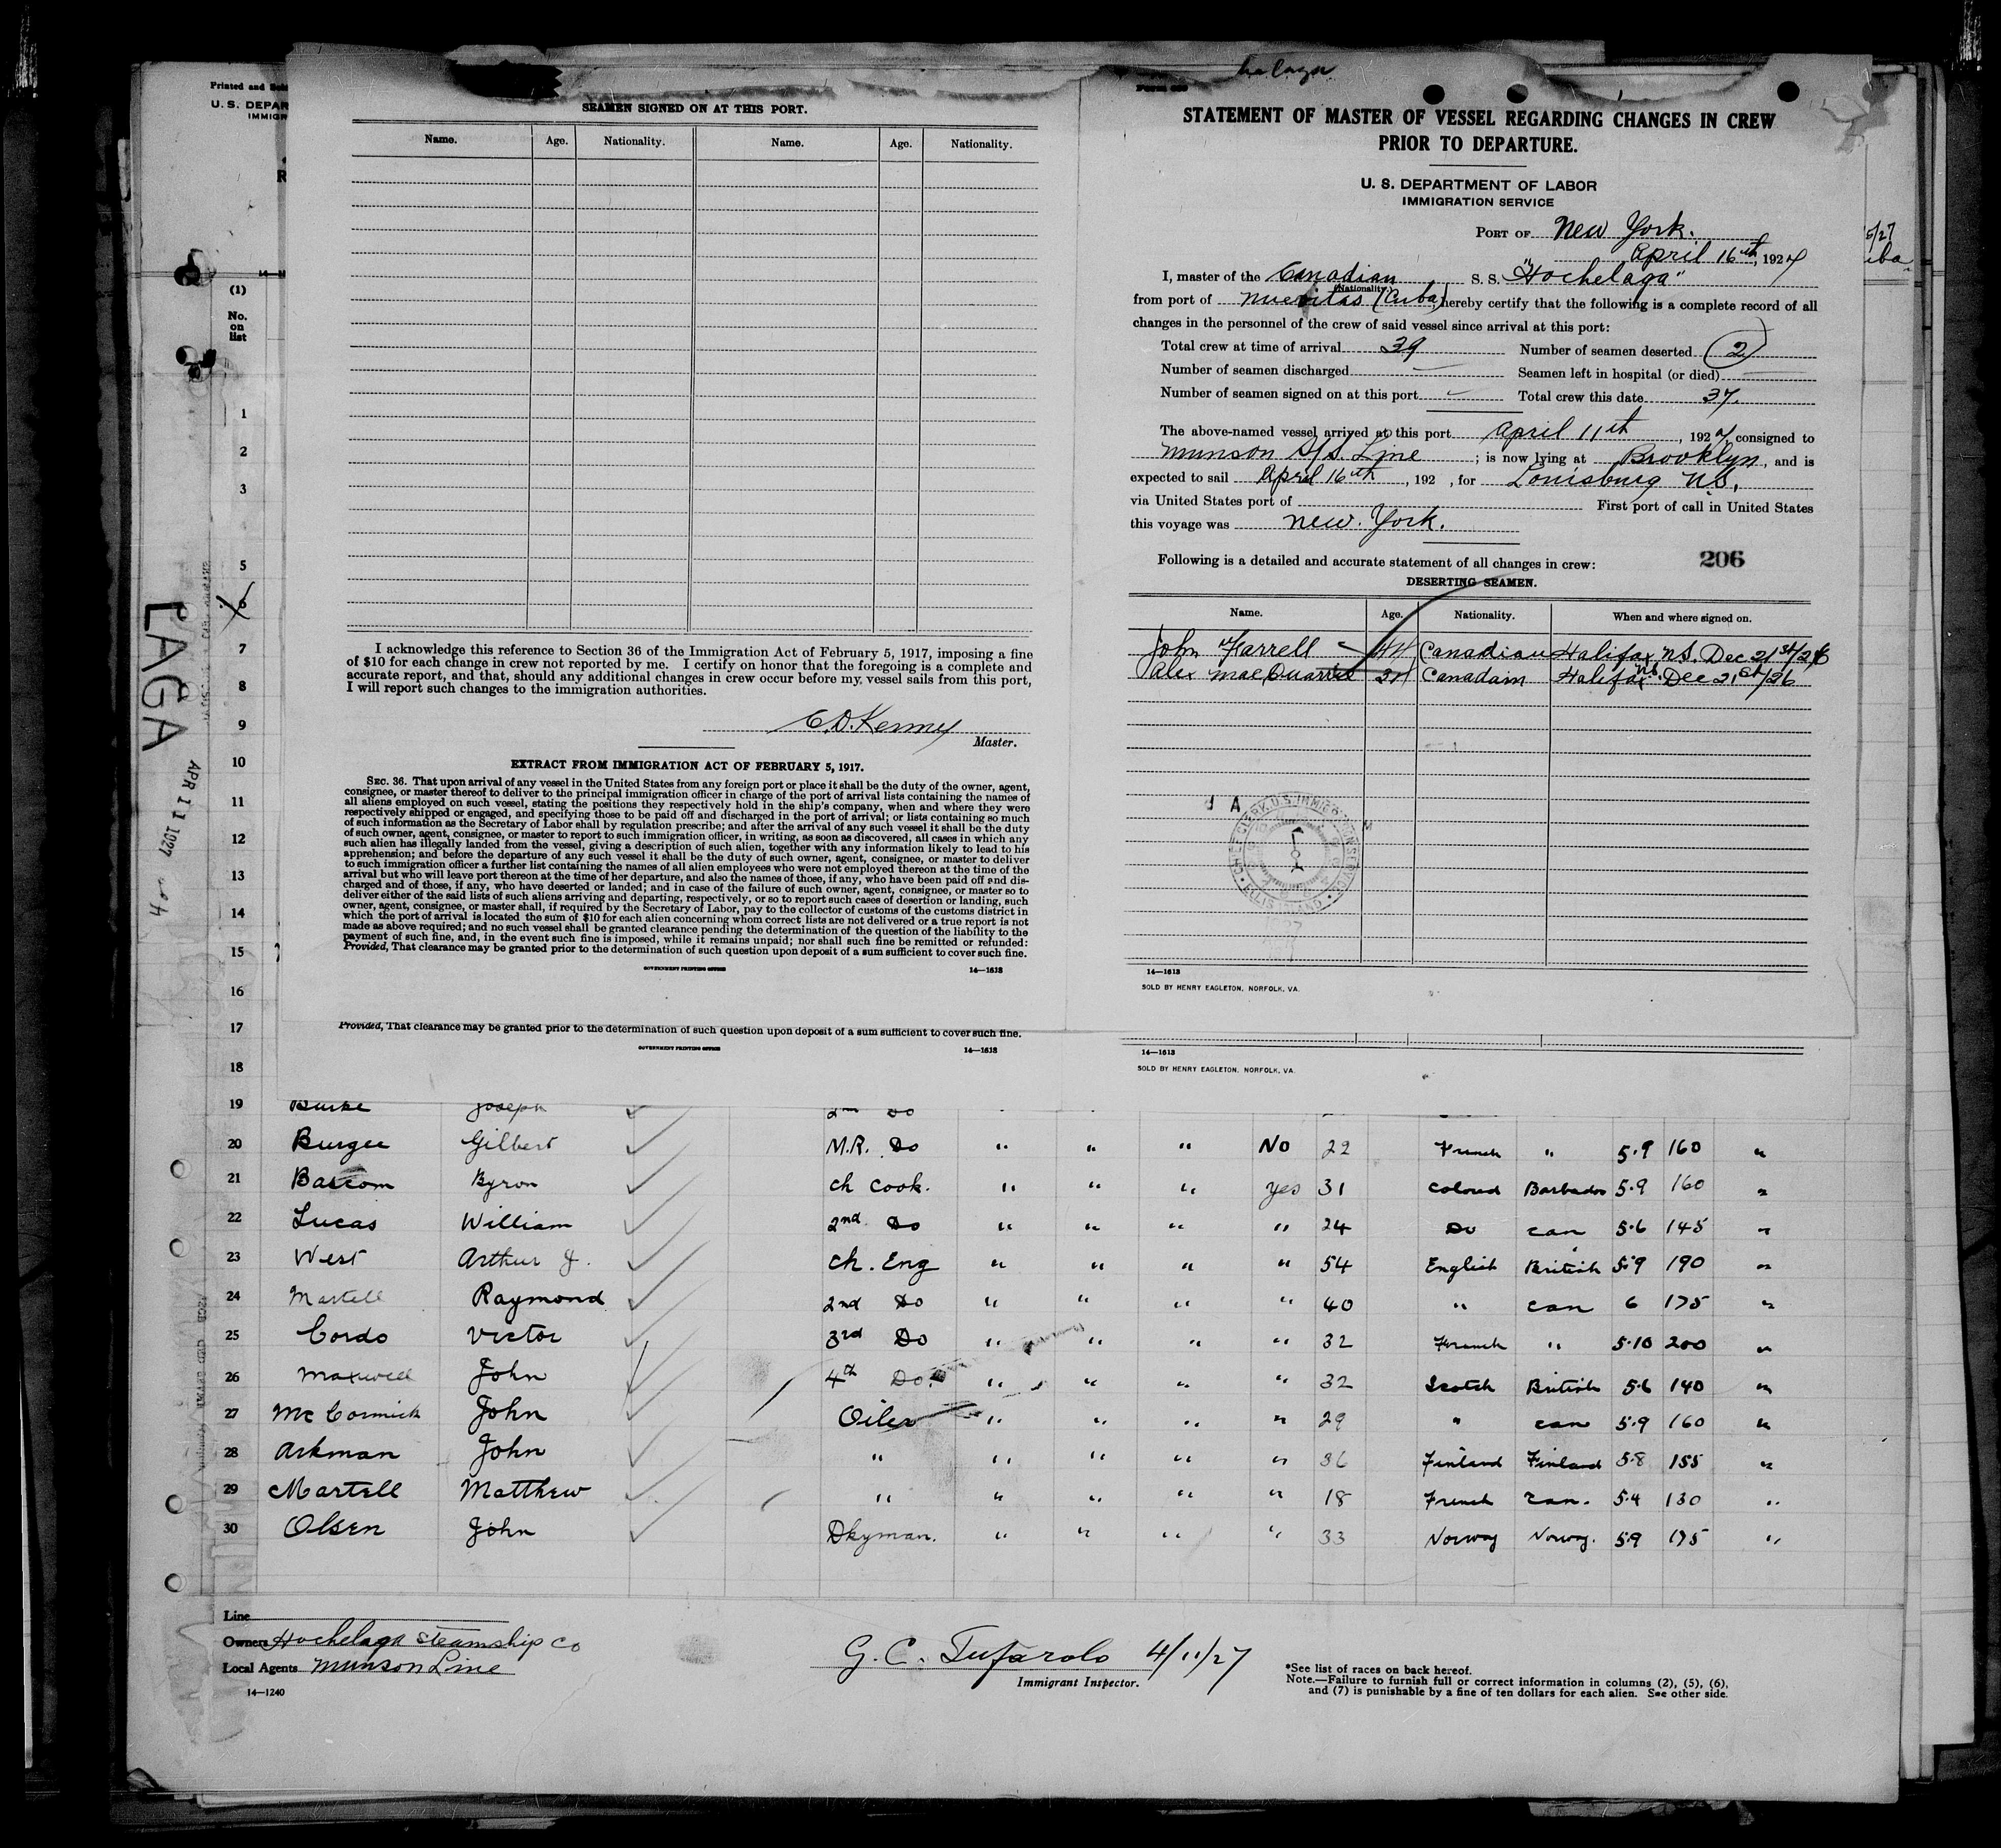 Printed and
U. S. DEPAR
IMMIGR
R
(1)
No.
on
list
1
2
3
5
6
7
8
9
10
11
12
13
14
15
16
17
18
LAGA
APR 11 1927
SEAMEN SIGNED ON AT THIS PORT.
Name. Age. Nationality. Name. Age. Nationality.
I acknowledge this reference to Section 36 of the Immigration Act of February 5, 1917, imposing a fine
of $10 for each change in crew not reported by me. I certify on honor that the foregoing is a complete and
accurate report, and that, should any additional changes in crew occur before my vessel sails from this port,
I will report such changes to the immigration authorities.
C. D. Kenney
Master.
EXTRACT FROM IMMIGRATION ACT OF FEBRUARY 5, 1917.
SEC. 36. That upon arrival of any vessel in the United States from any foreign port or place it shall be the duty of the owner, agent,
consignee, or master thereof to deliver to the principal immigration officer in charge of the port of arrival lists containing the names of
all aliens employed on such vessel, stating the positions they respectively hold in the ship's company, when and where they were
respectively shipped or engaged, and specifying those to be paid off and discharged in the port of arrival; or lists containing so much
of such information as the Secretary of Labor shall by regulation prescribe; and after the arrival of any such vessel it shall be the duty
of such owner, agent, consignee, or master to report to such immigration officer, in writing, as soon as discovered, all cases in which any
such alien has illegally landed from the vessel, giving a description of such alien, together with any information likely to lead to his
apprehension; and before the departure of any such vessel it shall be the duty of such owner, agent, consignee, or master to deliver
to such immigration officer a further list containing the names of all alien employees who were not employed thereon at the time of the
arrival but who will leave port thereon at the time of her departure, and also the names of those, if any, who have been paid off and dis-
charged and of those, if any, who have deserted or landed; and in case of the failure of such owner, agent, consignee, or master so to
deliver either of the said lists of such aliens arriving and departing, respectively, or so to report such cases of desertion or landing, such
owner, agent, consignee, or master shall, if required by the Secretary of Labor, pay to the collector of customs of the customs district in
which the port of arrival is located the sum of $10 for each alien concerning whom correct lists are not delivered or a true report is not
made as above required; and no such vessel shall be granted clearance pending the determination of the question of the liability to the
payment of such fine, and, in the event such fine is imposed, while it remains unpaid; nor shall such fine be remitted or refunded:
Provided, That clearance may be granted prior to the determination of such question upon deposit of a sum sufficient to cover such fine.
GOVERNMENT PRINTING OFFICE 14—1613
Provided, That clearance may be granted prior to the determination of such question upon deposit of a sum sufficient to cover such fine.
GOVERNMENT PRINTING OFFICE 14—1613
STATEMENT OF MASTER OF VESSEL REGARDING CHANGES IN CREW
PRIOR TO DEPARTURE.
U. S. DEPARTMENT OF LABOR
IMMIGRATION SERVICE
PORT OF New York.
April 16th, 1927
I, master of the Canadian S. S. "Hochelaga"
(Nationality)
from port of Nuevitas (Cuba) hereby certify that the following is a complete record of all
changes in the personnel of the crew of said vessel since arrival at this port:
Total crew at time of arrival 39 Number of seamen deserted (2)
Number of seamen discharged Seamen left in hospital (or died)
Number of seamen signed on at this port Total crew this date 37
The above-named vessel arrived at this port April 11th, 1927, consigned to
Munson S/S. Line; is now lying at Brooklyn, and is
expected to sail April 16th, 192 , for Louisburg N.S.
via United States port of First port of call in United States
this voyage was New York.
Following is a detailed and accurate statement of all changes in crew: 206
DESERTING SEAMEN.
Name. Age. Nationality. When and where signed on.
John Farrell Canadian Halifax N.S. Dec 21st/26
Alex Canadain Halifax N.S. Dec 21st/26
14—1613
SOLD BY HENRY EAGLETON, NORFOLK, VA.
14—1613
SOLD BY HENRY EAGLETON, NORFOLK, VA.
5/27
19 Burke Joseph 2nd Do
20 Burgee Gilbert M.R. Do " " " No 22 French " 5.9 160 "
21 Bascom Byron Ch Cook. " " " Yes 31 Colored Barbados 5.9 160 "
22 Lucas William 2nd Do " " " " 24 Do Can 5.6 145 "
23 West Arthur J. Ch. Eng " " " " 54 English British 5.9 190 "
24 Martell Raymond 2nd Do " " " " 40 " Can 6 175 "
25 Cordo Victor 3rd Do " " " " 32 French " 5.10 200 "
26 Maxwell John 4th Do. " " " " 32 Scotch British 5.6 140 "
27 McCormick John Oiler " " " " 29 " Can 5.9 160 "
28 Arkman John " " " " " 36 Finland Finland 5.8 155 "
29 Martell Matthew " " " " " 18 French Can. 5.4 130 "
30 Olsen John Dkyman. " " " " 33 Norway Norway. 5.9 175 "
Line
Owners Hochelaga Steamship Co
Local Agents Munson Line
14—1240
G. C. Tufarolo 4/11/27
Immigrant Inspector.
*See list of races on back hereof.
Note.—Failure to furnish full or correct information in columns (2), (5), (6),
and (7) is punishable by a fine of ten dollars for each alien. See other side.